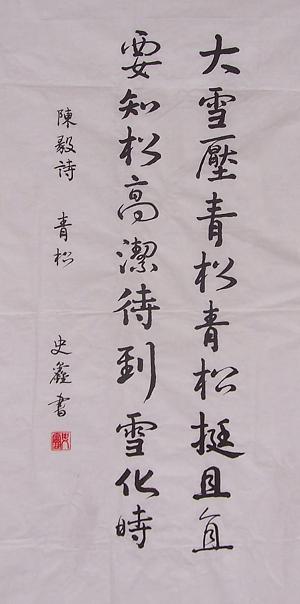 大雪壓青松青松挺且直
要知松高潔待到雪化時
陳毅詩 青松 史鑫書